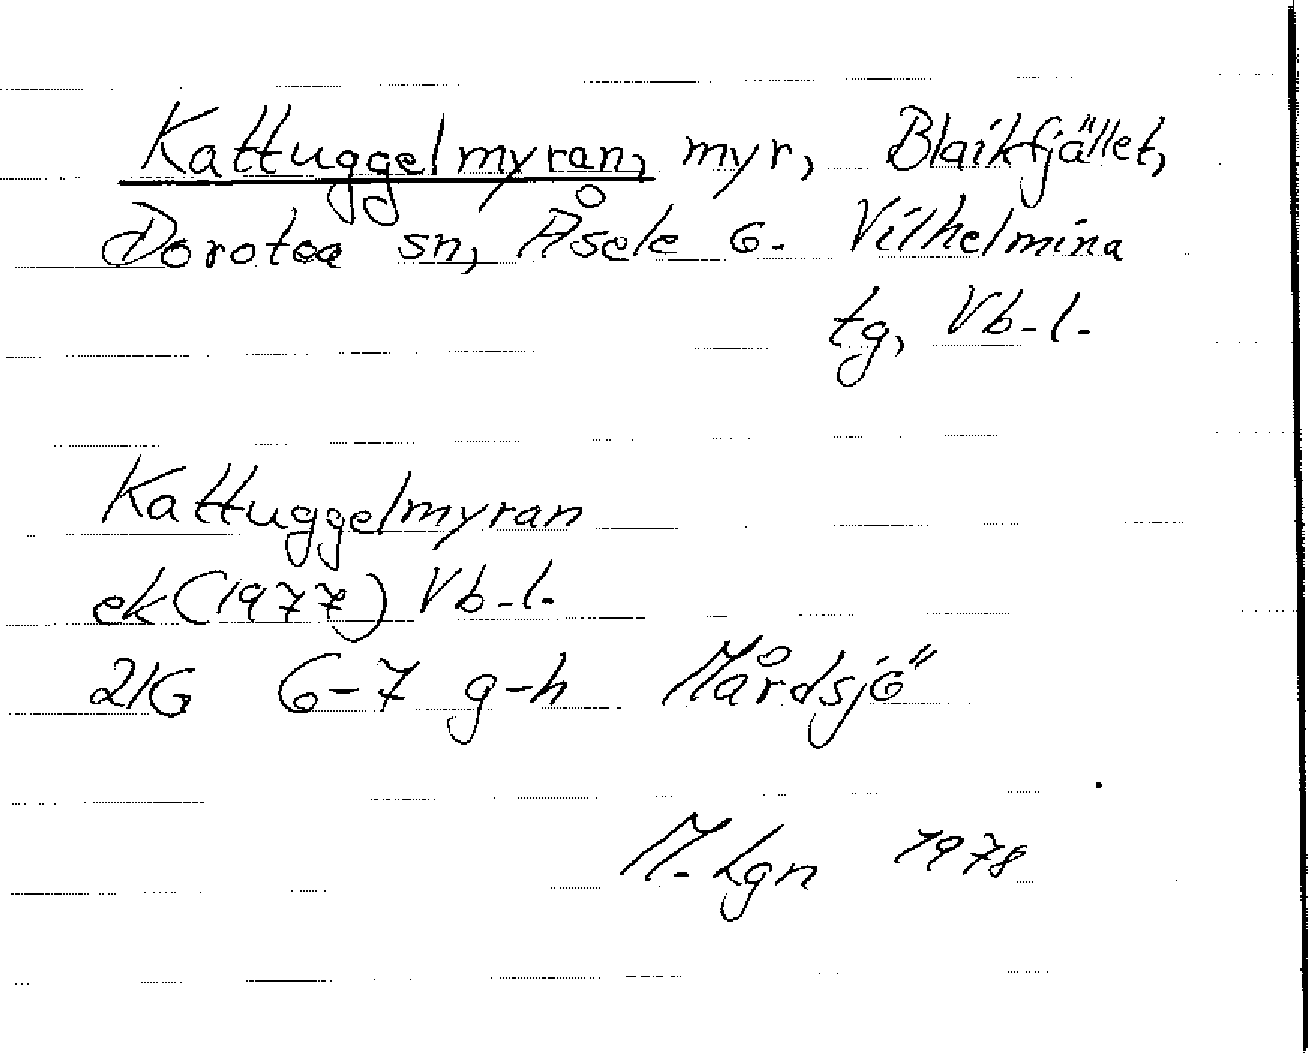 Kattuggelmyran, myr, Blaikfjället,
Dorotea sn, Åsele G. Vilhelmina
tg, Vb-l.
Kattuggelmyran
ek (1977) Vb-l.
21G 6-7 g-h Mårdsjö
M. Lgn 1978